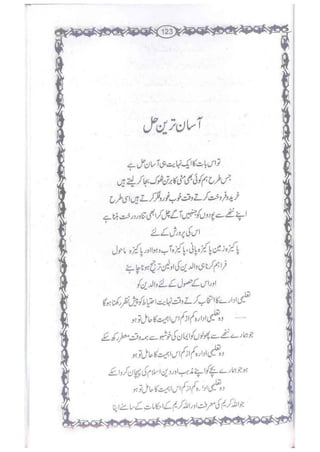 123
آسان ترین حل
تو اس بات کا ایک نہایت ہی آسان حل ہے
جس طرح ہم کوئی بھی مٹی کا برتن ٹھوک بجا کر لیتے ہیں
خرید و فروخت کرتے وقت خوب غور و فکر کرتے ہیں اسی طرح
اپنے ننھے سے پودوں کو جنہیں آگے چل کر ابھی تناور درخت بننا ہے
اس کی پرورش کے لئے
پاکیزہ زمین پاکیزہ پانی، پاکیزہ آب و ہوا اور پاکیزہ ماحول
فراہم کرنا ہی والدین کی اولین ترجیح ہونا چاہئے
اور اس کے حصول کے لئے والدین کو
تعلیمی ادارے کا انتخاب کرتے وقت نہایت احتیاط کو پیش نظر رکھنا ہو گا
وہ تعلیمی ادارہ کم از کم اس اہمیت کا حامل تو ہو
جو ہمارے ننھے سے پھولوں کو ایمان کی خوشبو سے ہمہ وقت معطر رکھ سکے
وہ تعلیمی ادارہ کم از کم اس اہمیت کا حامل تو ہو
جو ہمارے بچے کو اپنے مذہب اور دین اسلام کی پہچان کروا سکے
وہ تعلیمی ادارہ کم از کم اس اہمیت کا حامل تو ہو
جو اللہ کریم کی معرفت اور اللہ کریم کے احکامات کے سامنے اپنا